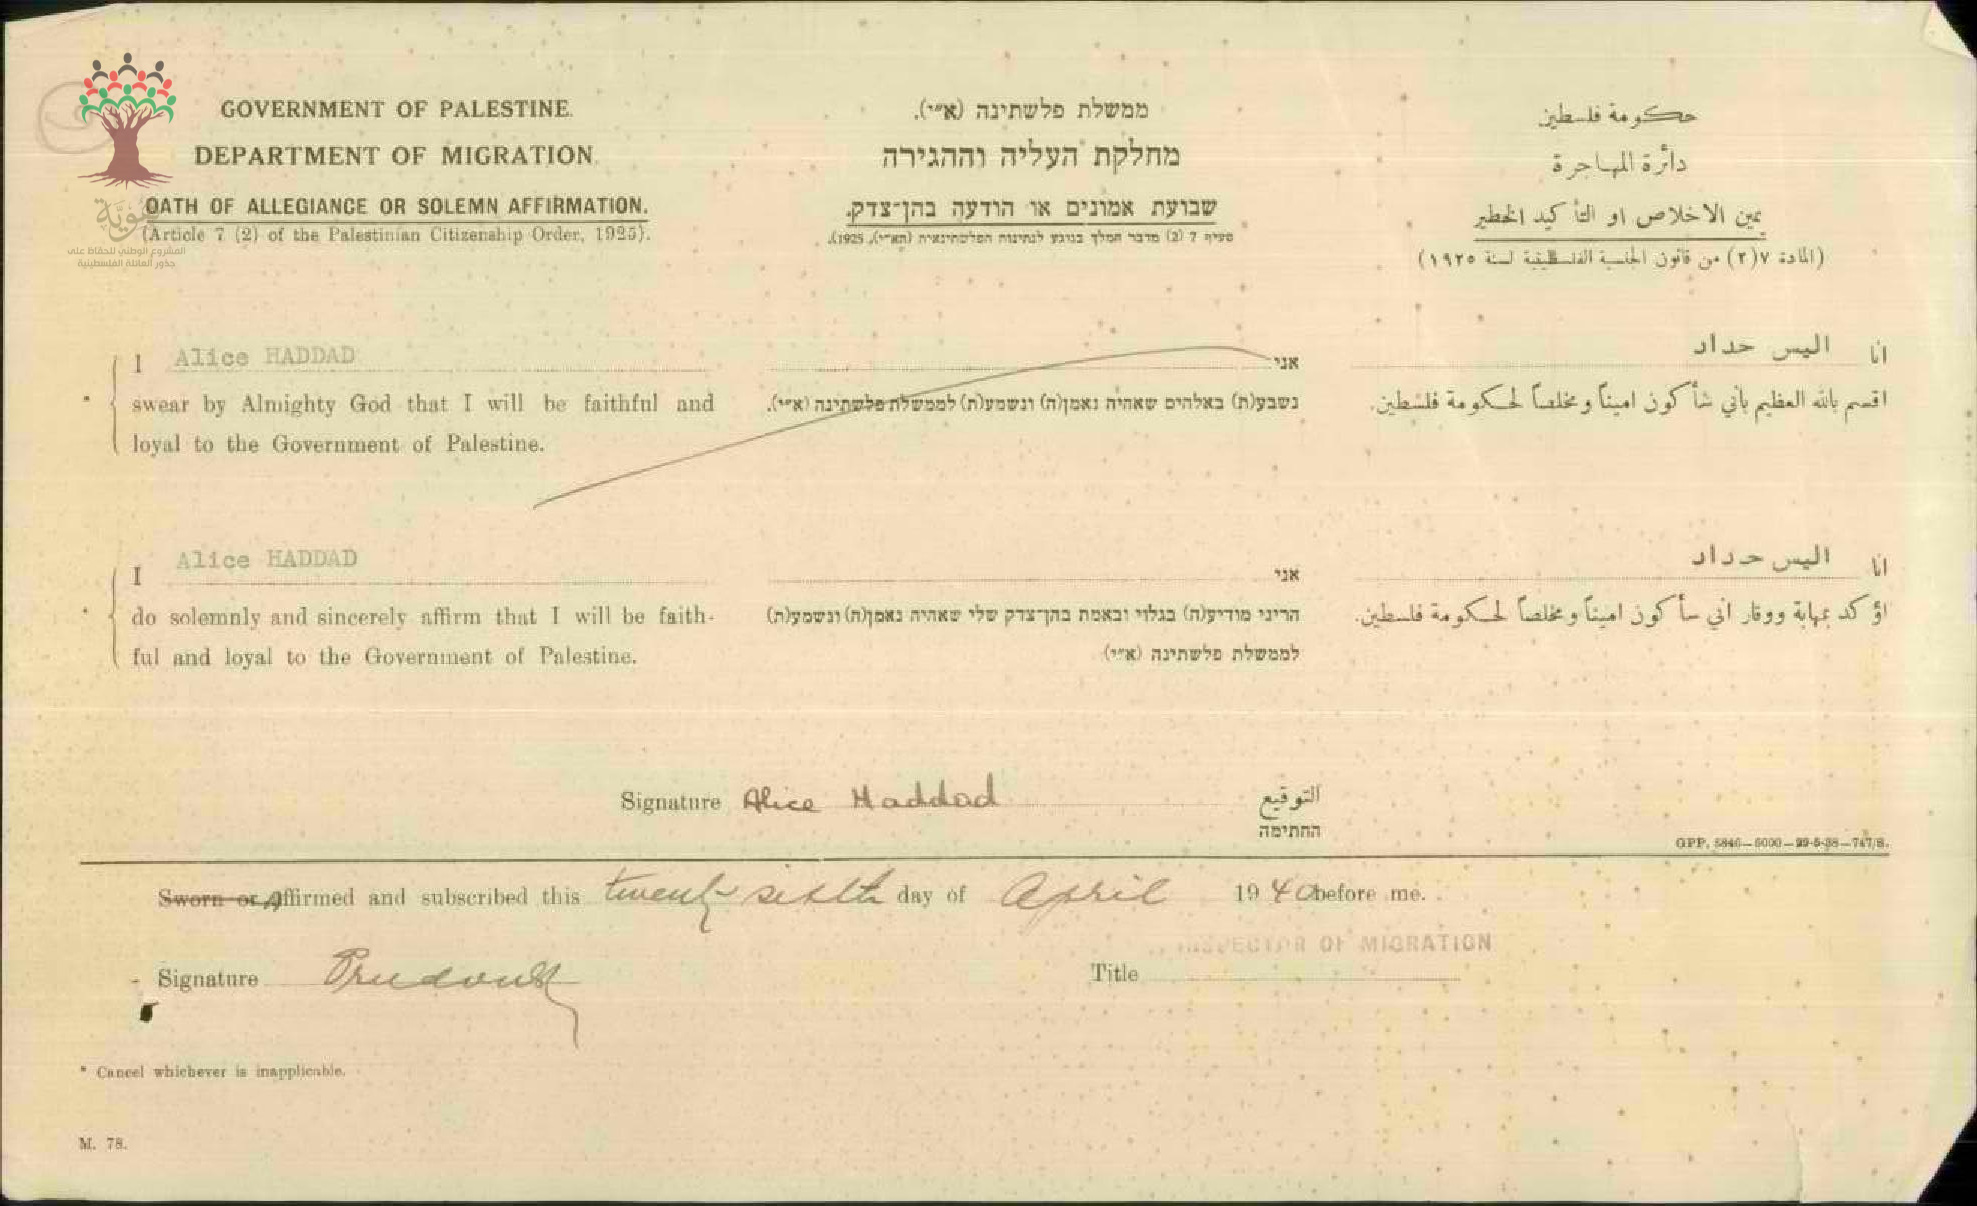 GOVERNMENT OF PALESTINE.
DEPARTMENT OF MIGRATION.
OATH OF ALLEGIANCE OR SOLEMN AFFIRMATION.
(Article 7 (2) of the Palestinian Citizenship Order, 1925).
ממשלת פלשתינה (א״י).
מחלקת העליה וההגירה
שבועת אמונים או הודעה בהן־צדק.
סעיף 7 (2) מדבר המלך בנוגע לנתינות הפלשתינאית (הא״י), 1925.
حكومة فلسطين
دائرة المهاجرة
يمين الاخلاص او التأكيد الخطير
(المادة ٧(٢) من قانون الجنسية الفلسطينية لسنة ١٩٢٥)
هُويّة
المشروع الوطني للحفاظ على
جذور العائلة الفلسطينية
I Alice HADDAD
* swear by Almighty God that I will be faithful and
loyal to the Government of Palestine.
אני
נשבע(ת) באלהים שאהיה נאמן(ה) ונשמע(ת) לממשלת פלשתינה (א״י).
انا اليس حداد
اقسم بالله العظيم بأني سأكون اميناً ومخلصاً لحكومة فلسطين.
I Alice HADDAD
* do solemnly and sincerely affirm that I will be faith-
ful and loyal to the Government of Palestine.
אני
הריני מודיע(ה) בגלוי ובאמת בהן־צדק שלי שאהיה נאמן(ה) ונשמע(ת)
לממשלת פלשתינה (א״י)
انا اليس حداد
اؤكد بمهابة ووقار اني سأكون اميناً ومخلصاً لحكومة فلسطين.
Signature Alice Haddad التوقيع
החתימה
GPP. 5846—5000—29-5-38—747/S.
Sworn or Affirmed and subscribed this twenty sixth day of April 1940 before me.
INSPECTOR OF MIGRATION
Signature
Title
* Cancel whichever is inapplicable.
M. 78.